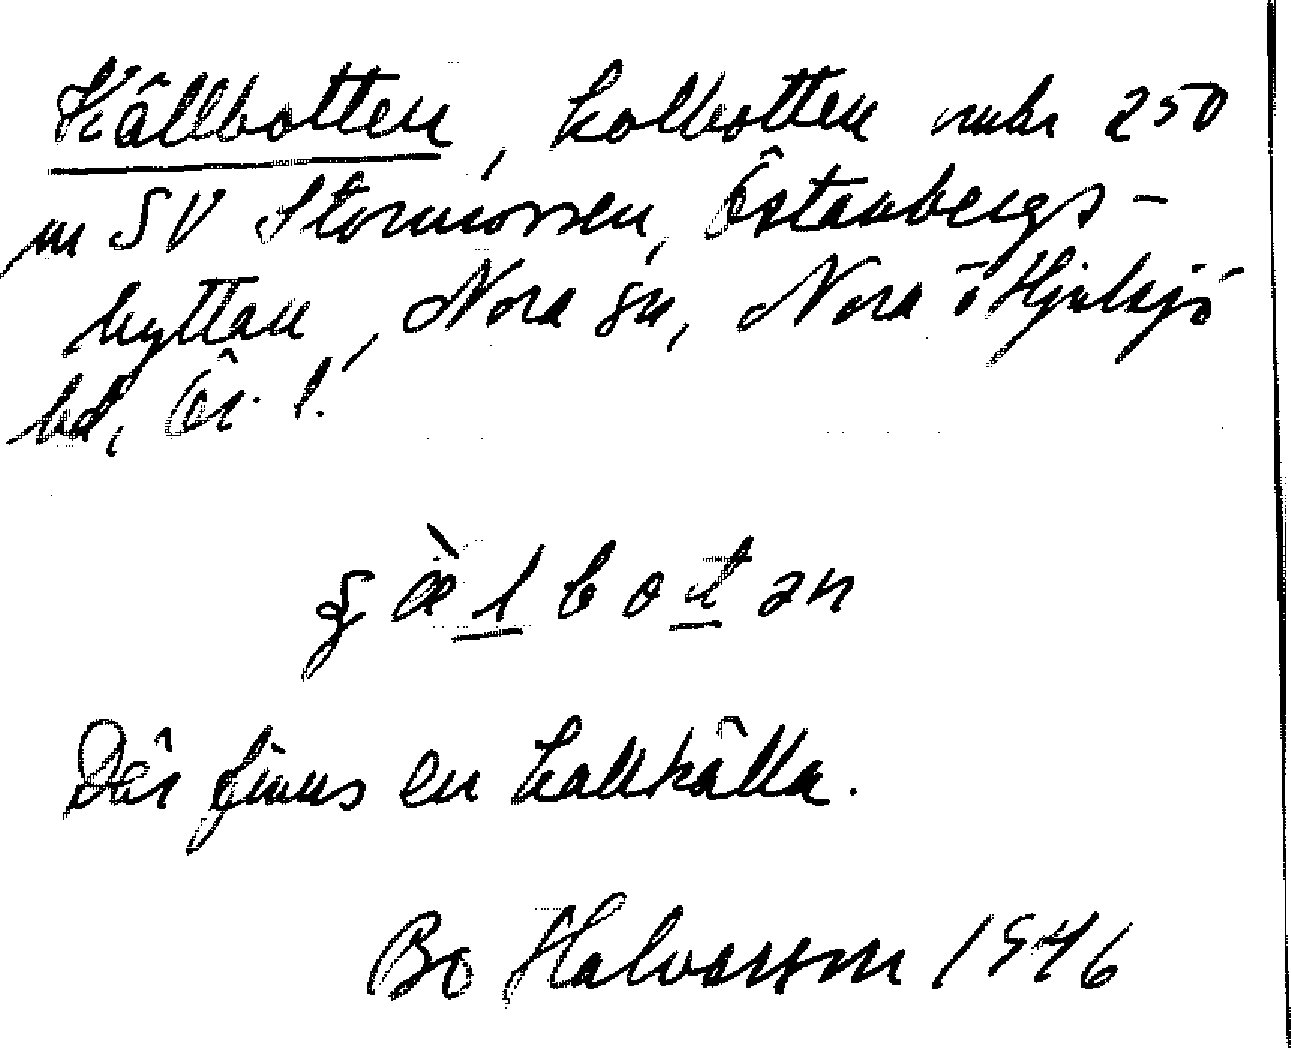 Källbotten, kolbotten omkr 250
m SV Stormossen, Östanbergs-
hyttan, Nora sn, Nora o Hjulsjö
bd, Ör. l.
ʂæ̀lbotən
Där finns en kallkälla.
Bo Halvarsson 1946